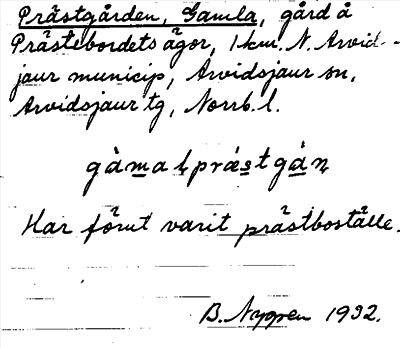 Prästgården, Gamla, gård å
Prästebordets ägor, 1 km. N. Arvid-
jaur municip, Arvidsjaur sn,
Arvidsjaur tg, Norrb. l.
gàmaɫprǽstgán̥
Har förut varit prästboställe.
B. Nygren 1932.